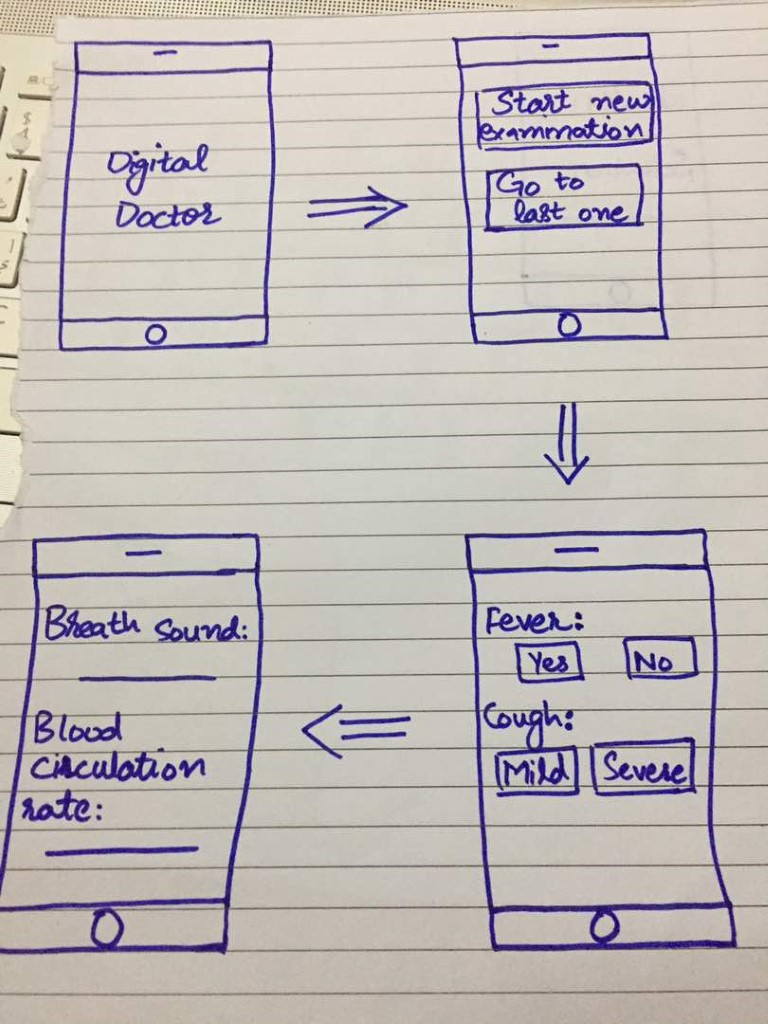 Digital
Doctor
Start new
examination
Go to
last one
Fever:
Yes No
Cough:
Mild Severe
Breath sound:
Blood
circulation
rate: